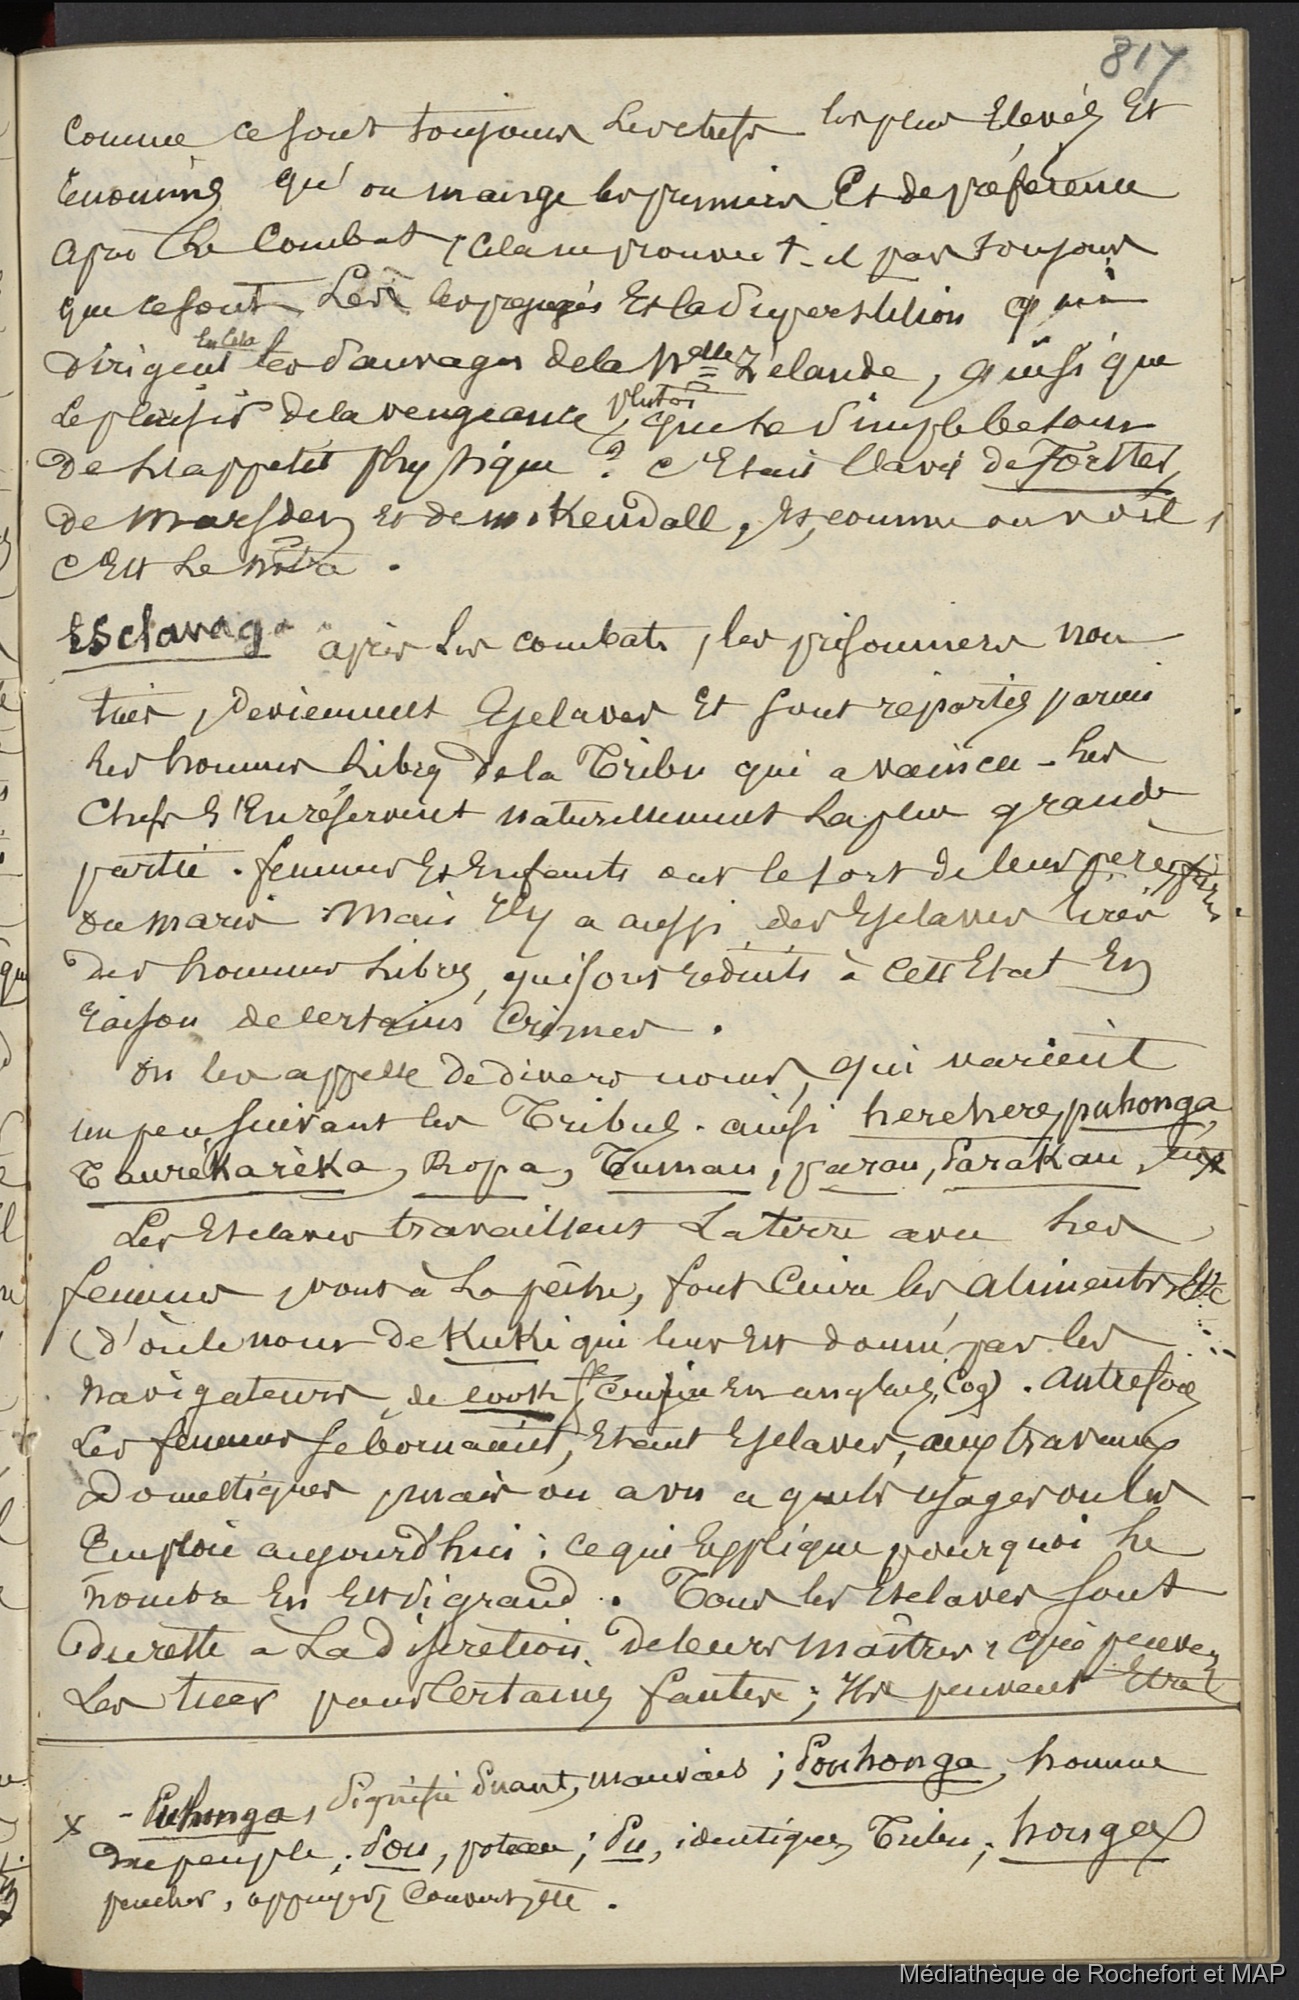 817
Comme ce sont toujours les chefs les plus Elevés Et
renommés qu'on mange les premiers Et de préférence
après Le Combat, cela ne prouve t-il pas toujours
que ce sont Les les préjugés Et la Superstition qui
En cela
dirigent les Sauvages de la Nelle Zélande, ainsi que
Le plaisir de la vengeance, plutôt que Le Simple besoin
de L'appetit physique ? C'Etait l'avis de Forster,
de Marsden et de m. Kendall, Et, comme on voit,
c'Est Le nôtre.
Esclavage après Les combats, les prisonniers non
tués, deviennent Esclaves Et sont répartis parmi
Les hommes Libres de la Tribu qui a vaincu - Les
Chefs s'En réservent naturellement La plus grande
partie. femmes Et Enfants ont le sort de leurs pères, frères
ou maris. Mais Il y a aussi des Esclaves tirés
des hommes Libres, qui sont réduits à Cet Etat En
raison de certains Crimes.
On les appelle de divers noms, qui varient
un peu, suivant les Tribus. ainsi herehere, puhonga,
Taurékarèka, Ropa, Tumau, parau, Parakau, x
Les Esclaves travaillent La terre avec Les
femmes, vont à La pêche, font Cuire les aliments, Etc
(d'où le nom de Kuki qui leur Est donné par les
navigateurs, de cook, Cuisine En anglais, Coq). autrefois
Les femmes se bornaient, Etant Esclaves, aux travaux
domestiques, mais on a vu a quels usages on les
Emploie aujourd'hui : ce qui Explique pourquoi Le
nombre En Est Si grand. Tous les Esclaves sont
du reste à La discrétion de leurs Maîtres, qui peuvent
Les tuer pour Certaines fautes ; Ils peuvent Etre
x - Puhonga, Signifie Puant, mauvais ; Pouhonga, homme
du peuple ; Pou, poteau ; Pu, identique, Tribu ; honga
pencher, appuyer, Couvert, Etc.
Médiathèque de Rochefort et MAP